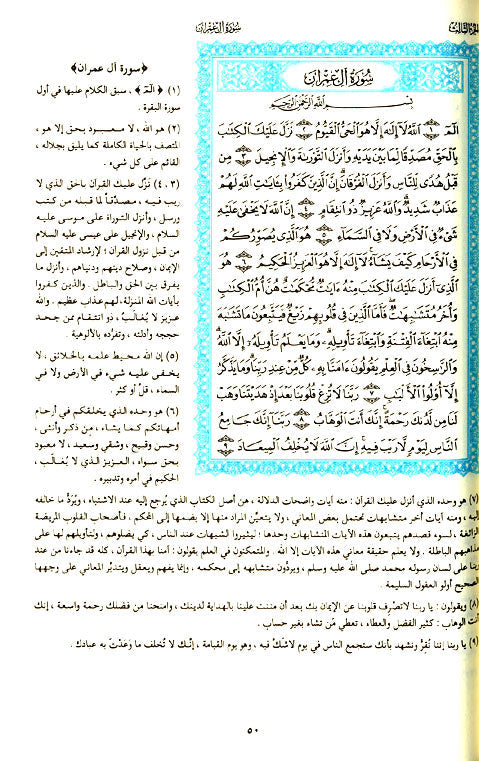 سُورَةُ آلِ عِمْرَان
الجزء الثالث
سُورَةُ آلِ عِمْرَان
بِسْمِ اللَّهِ الرَّحْمَٰنِ الرَّحِيمِ
الٓمٓ ١ اللَّهُ لَا إِلَٰهَ إِلَّا هُوَ الْحَيُّ الْقَيُّومُ ٢ نَزَّلَ عَلَيْكَ الْكِتَٰبَ
بِالْحَقِّ مُصَدِّقًا لِّمَا بَيْنَ يَدَيْهِ وَأَنزَلَ التَّوْرَىٰةَ وَالْإِنجِيلَ ٣ مِن
قَبْلُ هُدًى لِّلنَّاسِ وَأَنزَلَ الْفُرْقَانَ إِنَّ الَّذِينَ كَفَرُوا بِـَٔايَٰتِ اللَّهِ لَهُمْ
عَذَابٌ شَدِيدٌ وَاللَّهُ عَزِيزٌ ذُو انتِقَامٍ ٤ إِنَّ اللَّهَ لَا يَخْفَىٰ عَلَيْهِ
شَىْءٌ فِي الْأَرْضِ وَلَا فِي السَّمَاءِ ٥ هُوَ الَّذِي يُصَوِّرُكُمْ
فِي الْأَرْحَامِ كَيْفَ يَشَاءُ لَا إِلَٰهَ إِلَّا هُوَ الْعَزِيزُ الْحَكِيمُ ٦ هُوَ
الَّذِي أَنزَلَ عَلَيْكَ الْكِتَٰبَ مِنْهُ ءَايَٰتٌ مُّحْكَمَٰتٌ هُنَّ أُمُّ الْكِتَٰبِ
وَأُخَرُ مُتَشَٰبِهَٰتٌ فَأَمَّا الَّذِينَ فِي قُلُوبِهِمْ زَيْغٌ فَيَتَّبِعُونَ مَا تَشَٰبَهَ
مِنْهُ ابْتِغَاءَ الْفِتْنَةِ وَابْتِغَاءَ تَأْوِيلِهِ وَمَا يَعْلَمُ تَأْوِيلَهُ إِلَّا اللَّهُ
وَالرَّٰسِخُونَ فِي الْعِلْمِ يَقُولُونَ ءَامَنَّا بِهِ كُلٌّ مِّنْ عِندِ رَبِّنَا وَمَا يَذَّكَّرُ
إِلَّا أُولُوا الْأَلْبَٰبِ ٧ رَبَّنَا لَا تُزِغْ قُلُوبَنَا بَعْدَ إِذْ هَدَيْتَنَا وَهَبْ
لَنَا مِن لَّدُنكَ رَحْمَةً إِنَّكَ أَنتَ الْوَهَّابُ ٨ رَبَّنَا إِنَّكَ جَامِعُ
النَّاسِ لِيَوْمٍ لَّا رَيْبَ فِيهِ إِنَّ اللَّهَ لَا يُخْلِفُ الْمِيعَادَ ٩
﴿سورة آل عمران﴾
(١) ﴿الٓمٓ﴾ ، سبق الكلام عليها في أول
سورة البقرة .
(٢) هو الله ، لا معبود بحق إلا هو ،
المتصف بالحياة الكاملة كما يليق بجلاله ،
القائم على كل شيء .
(٣ ، ٤) نزَّل عليك القرآن بالحق الذي لا
ريب فيه ، مصدِّقًا لما قبله من كتب
ورسل ، وأنزل التوراة على موسى عليه
السلام ، والإنجيل على عيسى عليه السلام
من قبل نزول القرآن ؛ لإرشاد المتقين إلى
الإيمان ، وصلاح دينهم ودنياهم ، وأنزل ما
يفرق بين الحق والباطل . والذين كفروا
بآيات الله المنزلة، لهم عذاب عظيم . والله
عزيز لا يُغالَب ، ذو انتقام ممن جحد
حججه وأدلته ، وتفرُّده بالألوهية .
(٥) إن الله محيط علمه بالخلائق ، لا
يخفى عليه شيء في الأرض ولا في
السماء ، قلَّ أو كثر .
(٦) هو وحده الذي يخلقكم في أرحام
أمهاتكم كما يشاء ، من ذكر وأنثى ،
وحسن وقبيح ، وشقي وسعيد ، لا معبود
بحق سواه ، العزيز الذي لا يُغالَب ،
الحكيم في أمره وتدبيره .
(٧) هو وحده الذي أنزل عليك القرآن : منه آيات واضحات الدلالة ، هن أصل الكتاب الذي يُرجع إليه عند الاشتباه ، ويُرَدُّ ما خالفه
إليه ، ومنه آيات أخر متشابهات تحتمل بعض المعاني ، ولا يتعيَّن المراد منها إلا بضمها إلى المحكم ، فأصحاب القلوب المريضة
الزائغة ، لسوء قصدهم يتبعون هذه الآيات المتشابهات وحدها ؛ ليثيروا الشبهات عند الناس ، كي يضلوهم ، ولتأويلهم لها على
مذاهبهم الباطلة . ولا يعلم حقيقة معاني هذه الآيات إلا الله . والمتمكنون في العلم يقولون : آمنا بهذا القرآن ، كله قد جاءنا من عند
ربنا على لسان رسوله محمد صلى الله عليه وسلم ، ويردُّون متشابهه إلى محكمه ، وإنما يفهم ويعقل ويتدبَّر المعاني على وجهها
الصحيح أولو العقول السليمة .
(٨) ويقولون : يا ربنا لاتصْرِف قلوبنا عن الإيمان بك بعد أن مننت علينا بالهداية لدينك ، وامنحنا من فضلك رحمة واسعة ، إنك
أنت الوهاب : كثير الفضل والعطاء ، تعطي مَن تشاء بغير حساب .
(٩) يا ربنا إننا نُقِرُّ ونشهد بأنك ستجمع الناس في يوم لاشكَّ فيه ، وهو يوم القيامة ، إنَّك لا تُخلف ما وَعَدْتَ به عبادك .
٥٠